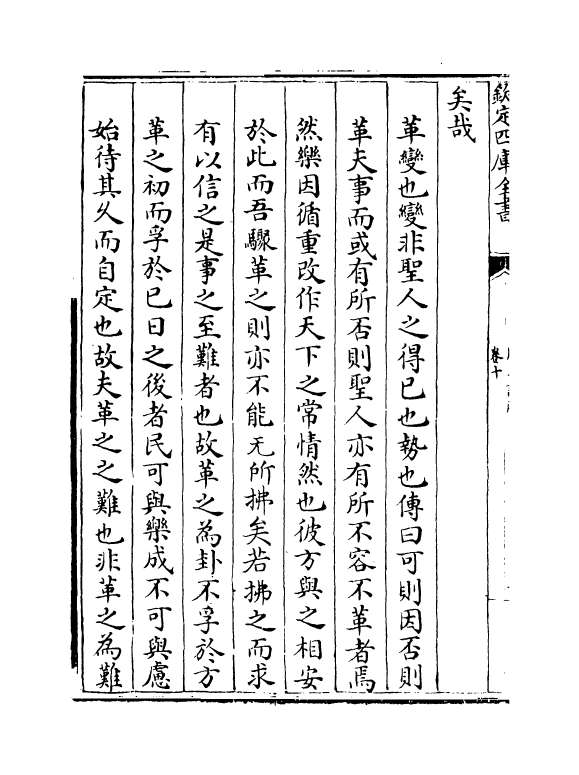 欽定四庫全書
卷十
矣哉
革變也變非聖人之得已也勢也傳曰可則因否則
革夫事而或有所否則聖人亦有所不容不革者焉
然樂因循重改作天下之常情然也彼方與之相安
於此而吾驟革之則亦不能无所拂矣若拂之而求
有以信之是事之至難者也故革之為卦不孚於方
革之初而孚於已日之後者民可與樂成不可與慮
始待其久而自定也故夫革之之難也非革之為難